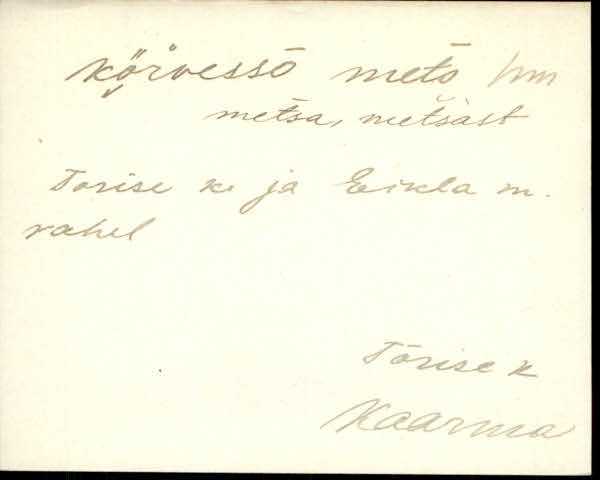 körvessõ metõ mm
metsa, metšast
Torise k. ja Eikla m.
vahel
Tõrise k
Kaarma